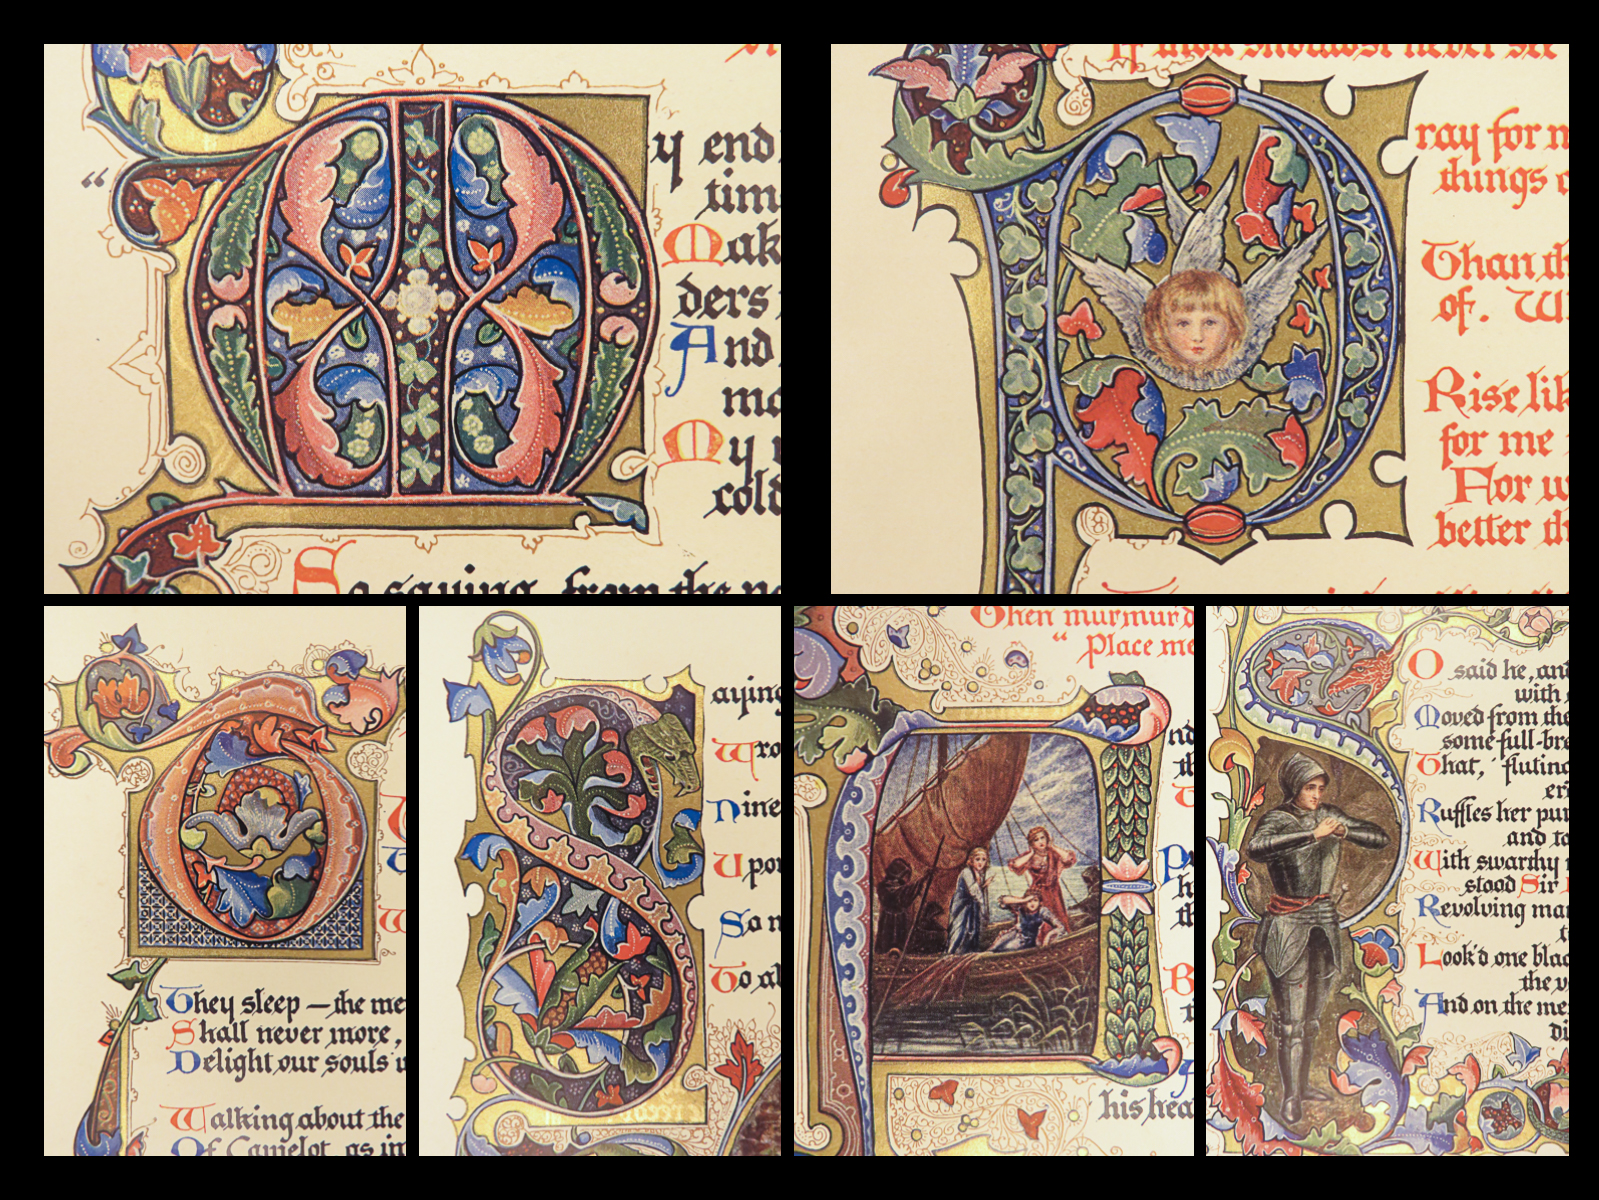 “My end
tim
Mak
ders
And
My
cold
So saying, from the
If thou shouldst never see
Pray for m
things
Than th
of. W
Rise lik
for me
For w
better th
O
They sleep — the me
Shall never more,
Delight our souls
Walking about the
Of Camelot, as in
Saying
Wro
Nine
Upon
So
To al
Then murmur'd
“Place me
And
th
his hea
S
O said he, and
with
Moved from the
some full-bre
That, fluting
er
Ruffles her pur
and ta
With swarthy
stood Sir
Revolving man
Look'd one blac
the
And on the me
di